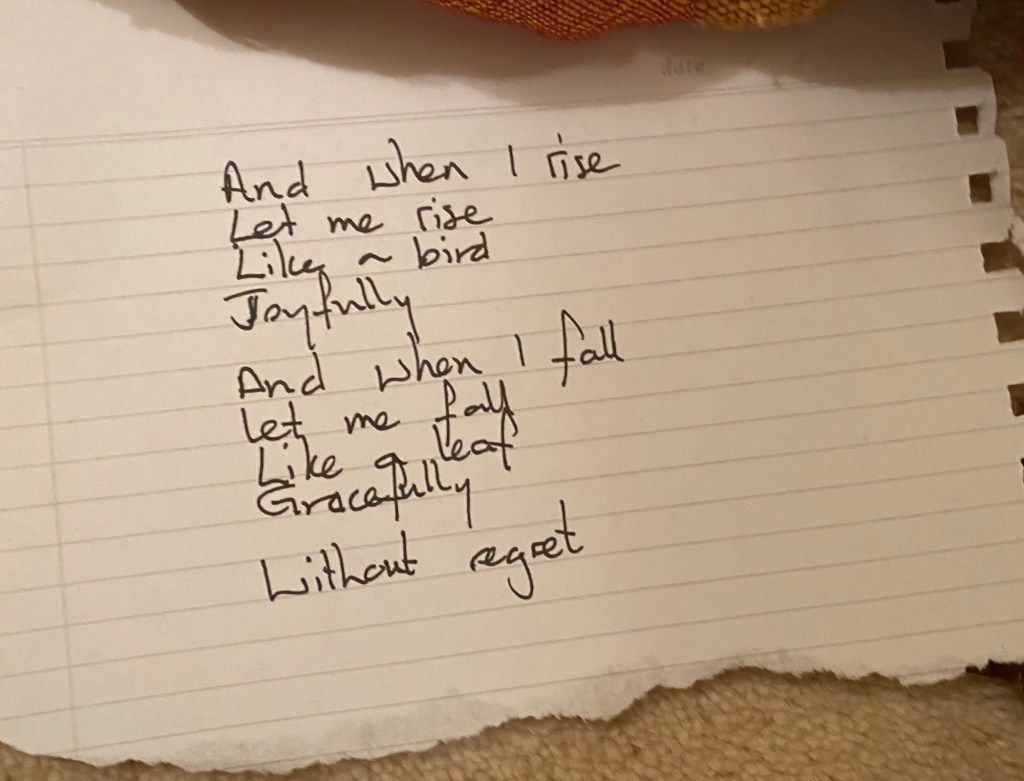 date
And when I rise
Let me rise
Like a bird
Joyfully
And when I fall
Let me fall
Like a leaf
Gracefully
Without regret